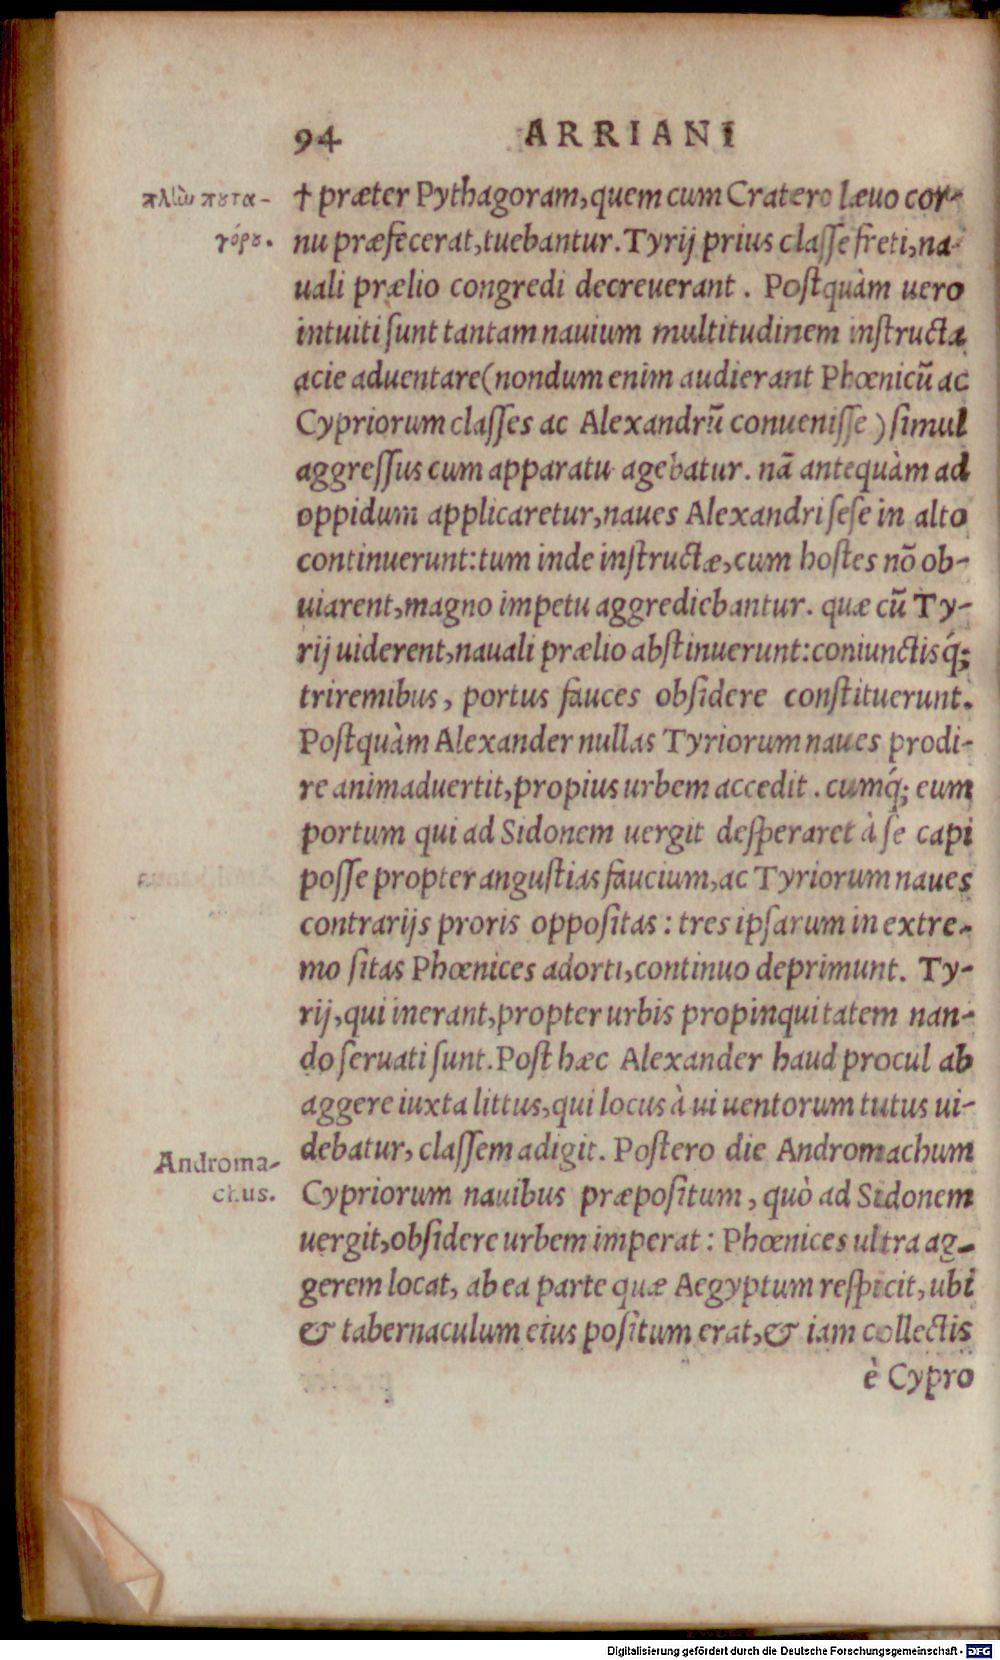 94 ARRIANI
πλὴν πυτα-
γόρου.
† præter Pythagoram, quem cum Cratero læuo cor-
nu præfecerat, tuebantur. Tyrij prius classe freti, na-
uali prælio congredi decreuerant. Postquàm uero
intuiti sunt tantam nauium multitudinem instructa
acie aduentare (nondum enim audierant Phœnicũ ac
Cypriorum classes ac Alexandrũ conuenisse) simul
aggressus cum apparatu agebatur. nã antequàm ad
oppidum applicaretur, naues Alexandri sese in alto
continuerunt: tum inde instructæ, cum hostes nõ ob-
uiarent, magno impetu aggrediebantur. quæ cũ Ty-
rij uiderent, nauali prælio abstinuerunt: coniunctisq́;
triremibus, portus fauces obsidere constituerunt.
Postquàm Alexander nullas Tyriorum naues prodi-
re animaduertit, propius urbem accedit. cumq́; eum
portum qui ad Sidonem uergit desperaret à se capi
posse propter angustias faucium, ac Tyriorum naues
contrarijs proris oppositas: tres ipsarum in extre-
mo sitas Phœnices adorti, continuo deprimunt. Ty-
rij, qui inerant, propter urbis propinquitatem nan-
do seruati sunt. Post hæc Alexander haud procul ab
aggere iuxta littus, qui locus à ui uentorum tutus ui-
debatur, classem adigit. Postero die Andromachum
Androma-
chus.
Cypriorum nauibus præpositum, quò ad Sidonem
uergit, obsidere urbem imperat: Phœnices ultra ag-
gerem locat, ab ea parte quæ Aegyptum respicit, ubi
& tabernaculum eius positum erat, & iam collectis
è Cypro
Digitalisierung gefördert durch die Deutsche Forschungsgemeinschaft - DFG